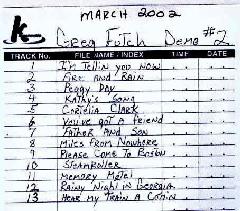 MARCH 2002
K Greg Futch Demo #2
TRACK No. FILE NAME / INDEX TIME DATE
1 I'm Tellin you Now
2 Fire and Rain
3 Peggy Day
4 Kathy's Song
5 Corrina Clark
6 You've got a Friend
7 Father And Son
8 Miles From Nowhere
9 Please Come To Boston
10 Steamroller
11 Memory Motel
12 Rainy Night in Georgia
13 Hear My Train A Comin